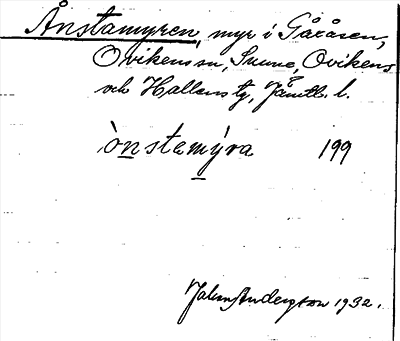 Ånstamyren, myr i Gåråsen,
Ovikens sn, Sunne, Ovikens
och Hallens tg, Jämtl. l.
ònstemýra 199
Johan Anderzon 1932.